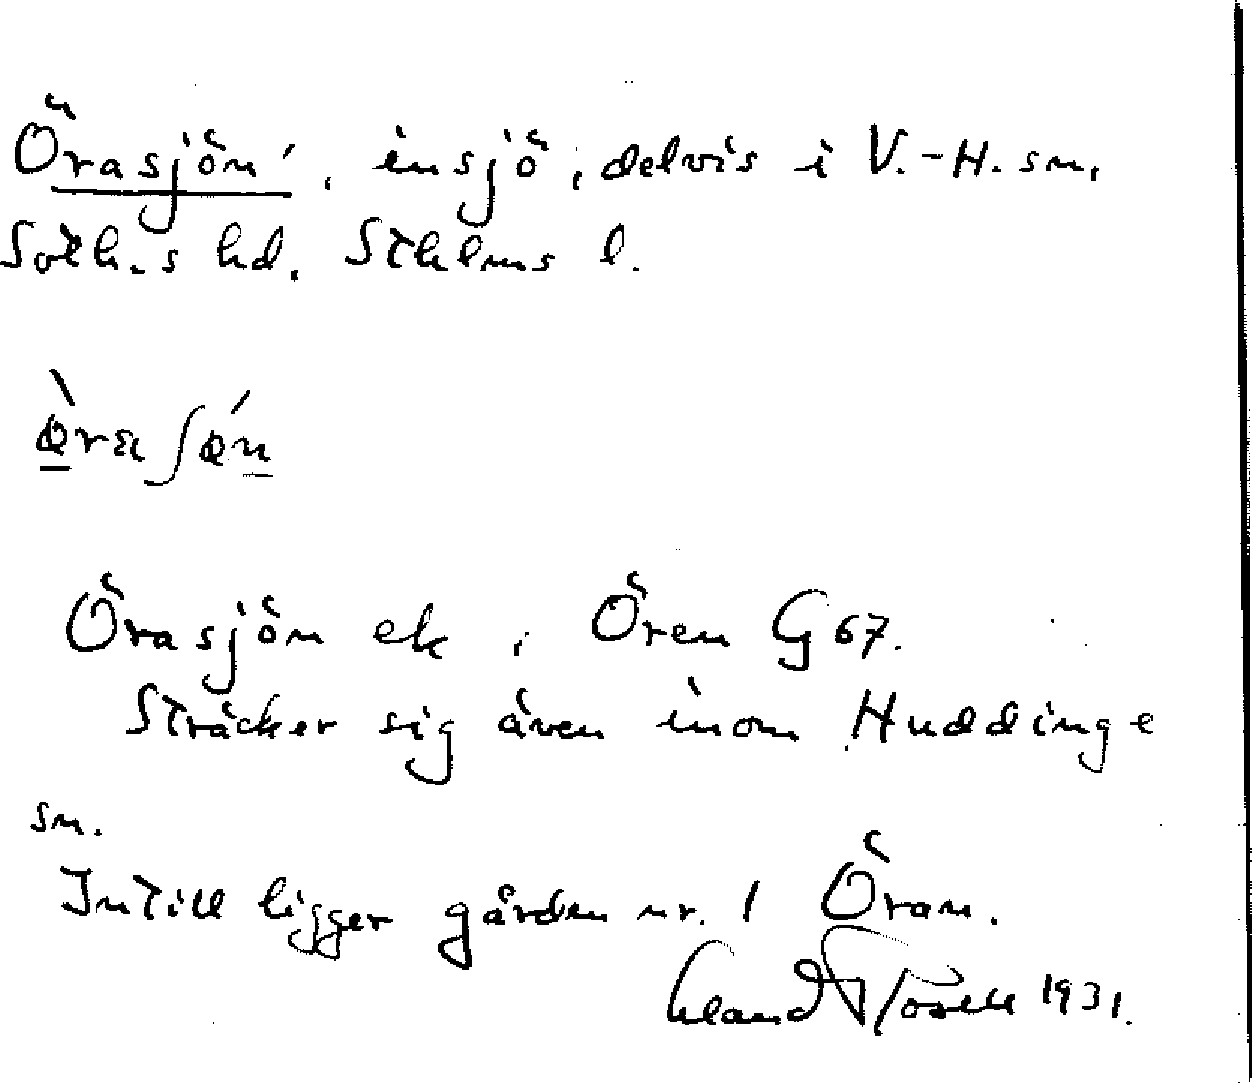 Örasjön, insjö, delvis i V.-H. sn,
Soth.s hd. Sthlms l.
Örasjön ek, Ören G 67.
Sträcker sig även inom Huddinge
sn.
Intill ligger gården nr. 1 Öran.
1931.